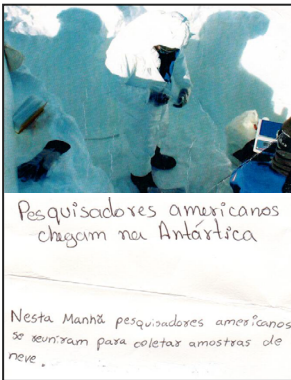 Pesquisadores americanos
chegam na Antártica
Nesta Manhã pesquisadores americanos
se reuniram para coletar amostras de
neve.